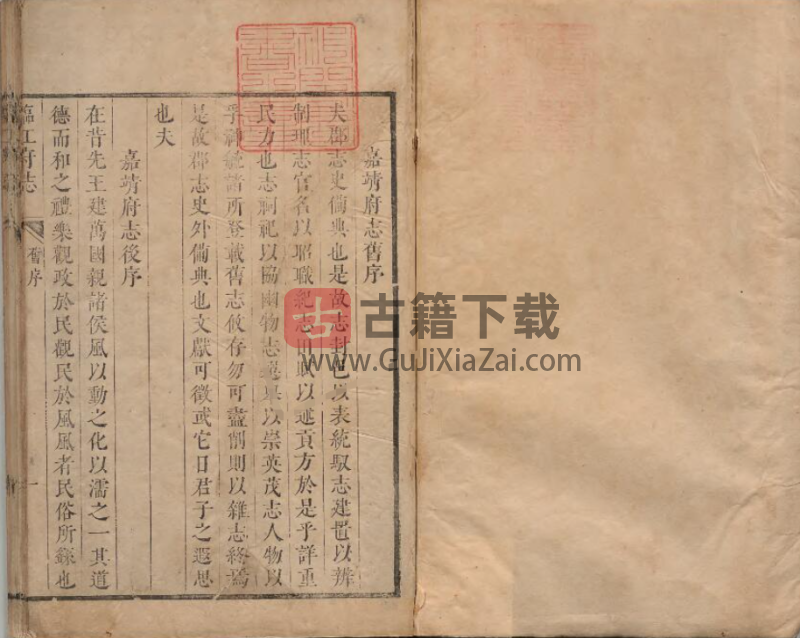 嘉靖府志舊序
夫郡志史備典也是故志封邑以表統馭志建置以辨
制理志官名以昭職紀志田賦以述貢方於是乎詳重
民力也志祠祀以協幽物志選舉以崇英茂志人物以
乎 統諸所登載舊志攸存勿可盡削則以雜志終焉
是故郡志史外備典也文獻可徵或它日君子之遐思
也夫
嘉靖府志後序
在昔先王建萬國親諸侯風以動之化以濡之一其道
德而和之禮樂觀政於民觀民於風風者民俗所繇也
臨江府志
舊序
一
古籍下载
www.GuJiXiaZai.com